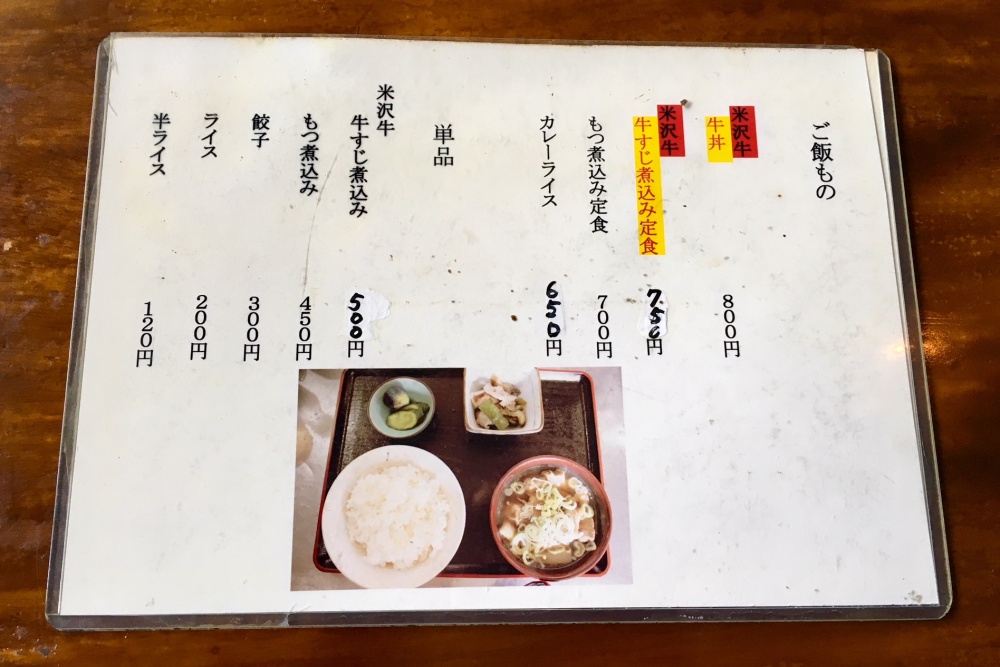 ご飯もの
米沢牛
牛丼
800円
米沢牛
牛すじ煮込み定食
750円
もつ煮込み定食
700円
カレーライス
650円
単品
米沢牛
牛すじ煮込み
500円
もつ煮込み
450円
餃子
300円
ライス
200円
半ライス
120円